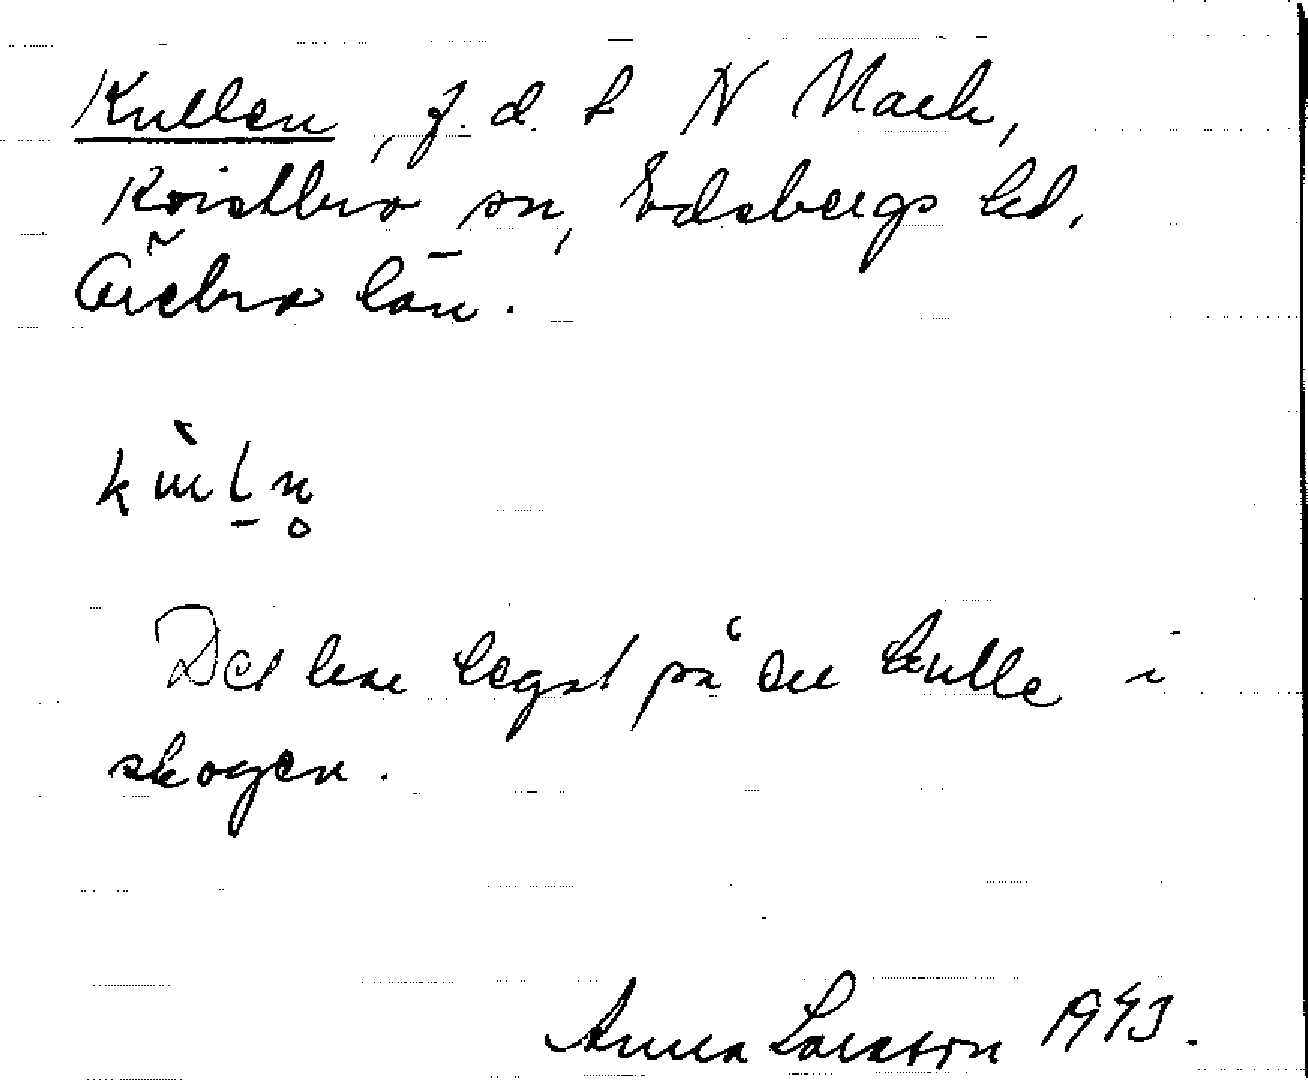 Kullen, f. d. t N Mark,
Kvistbro sn, Edsbergs hd.
Örebro län.
Det har legat på en kulle i
skogen.
Anna Larsson 1943.